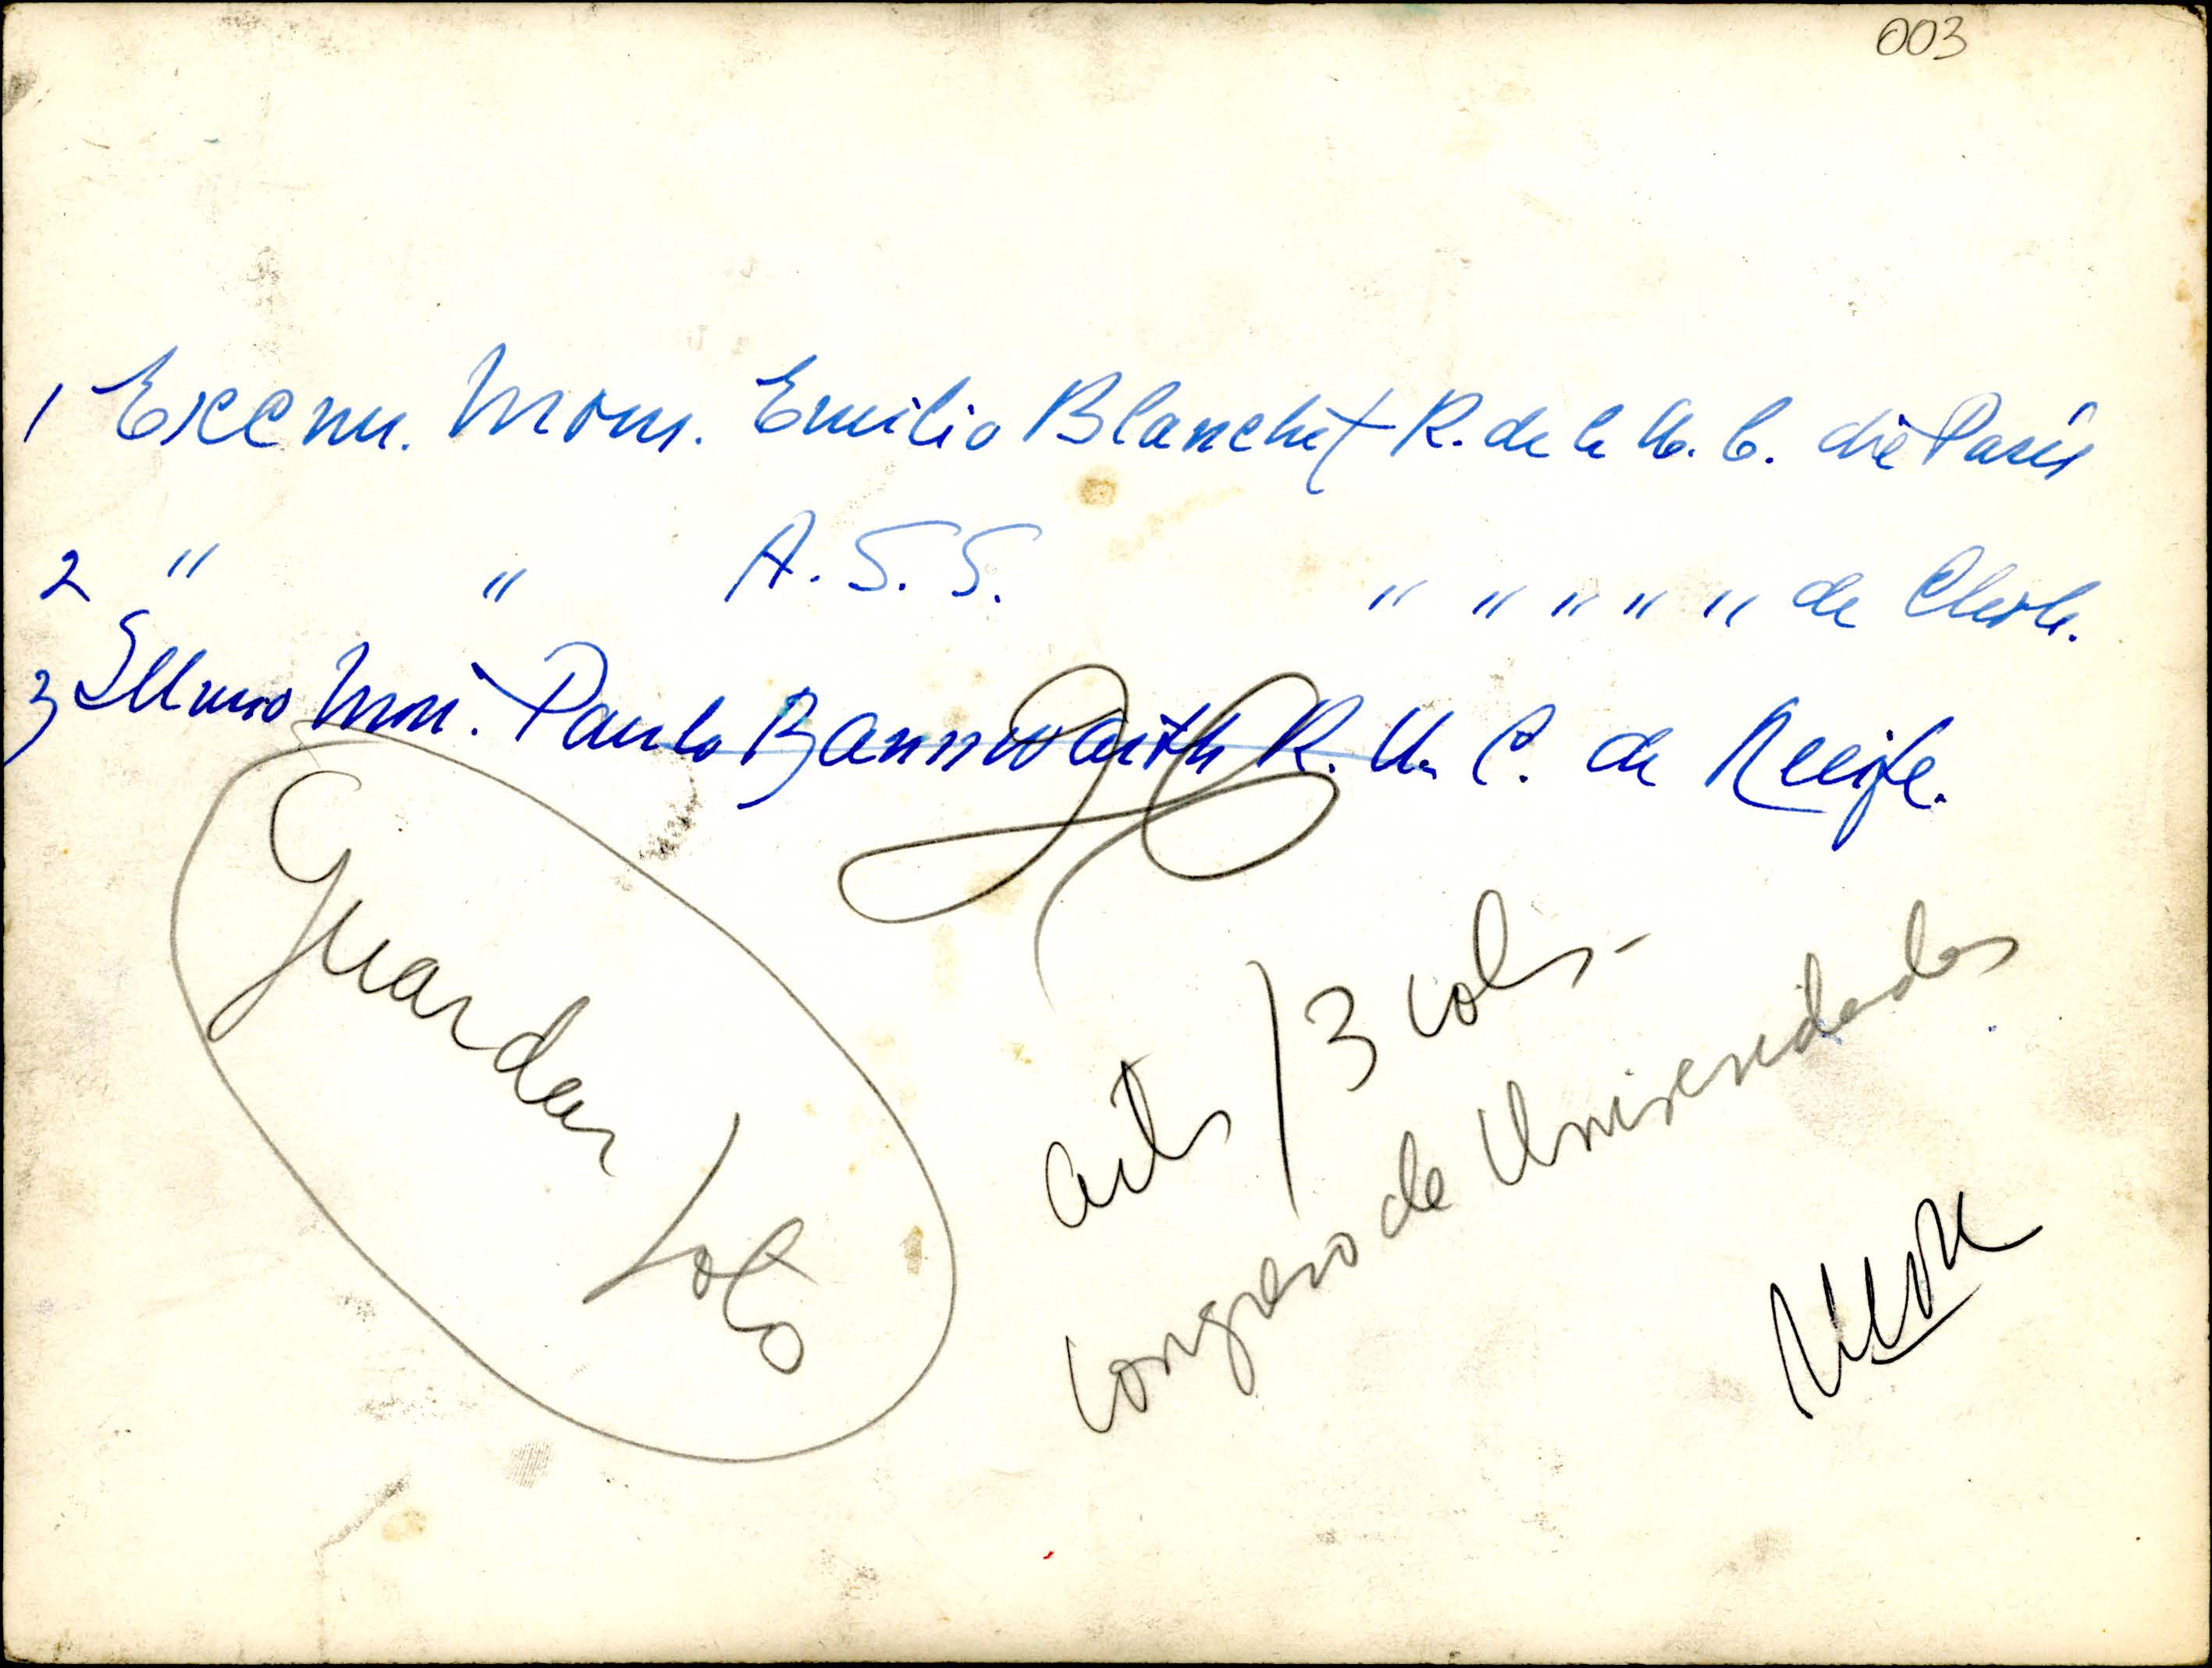 003
1 Excmu. Mons. Emilio Blanchet R. de la U. C. de París
2 " " A. S. S. " " " " " de Chile.
3 Illmo Mon. Paulo Bannwarth R. U. C. de Recife.
Guardar foto
arts / 3 cols -
Congreso de Universidades